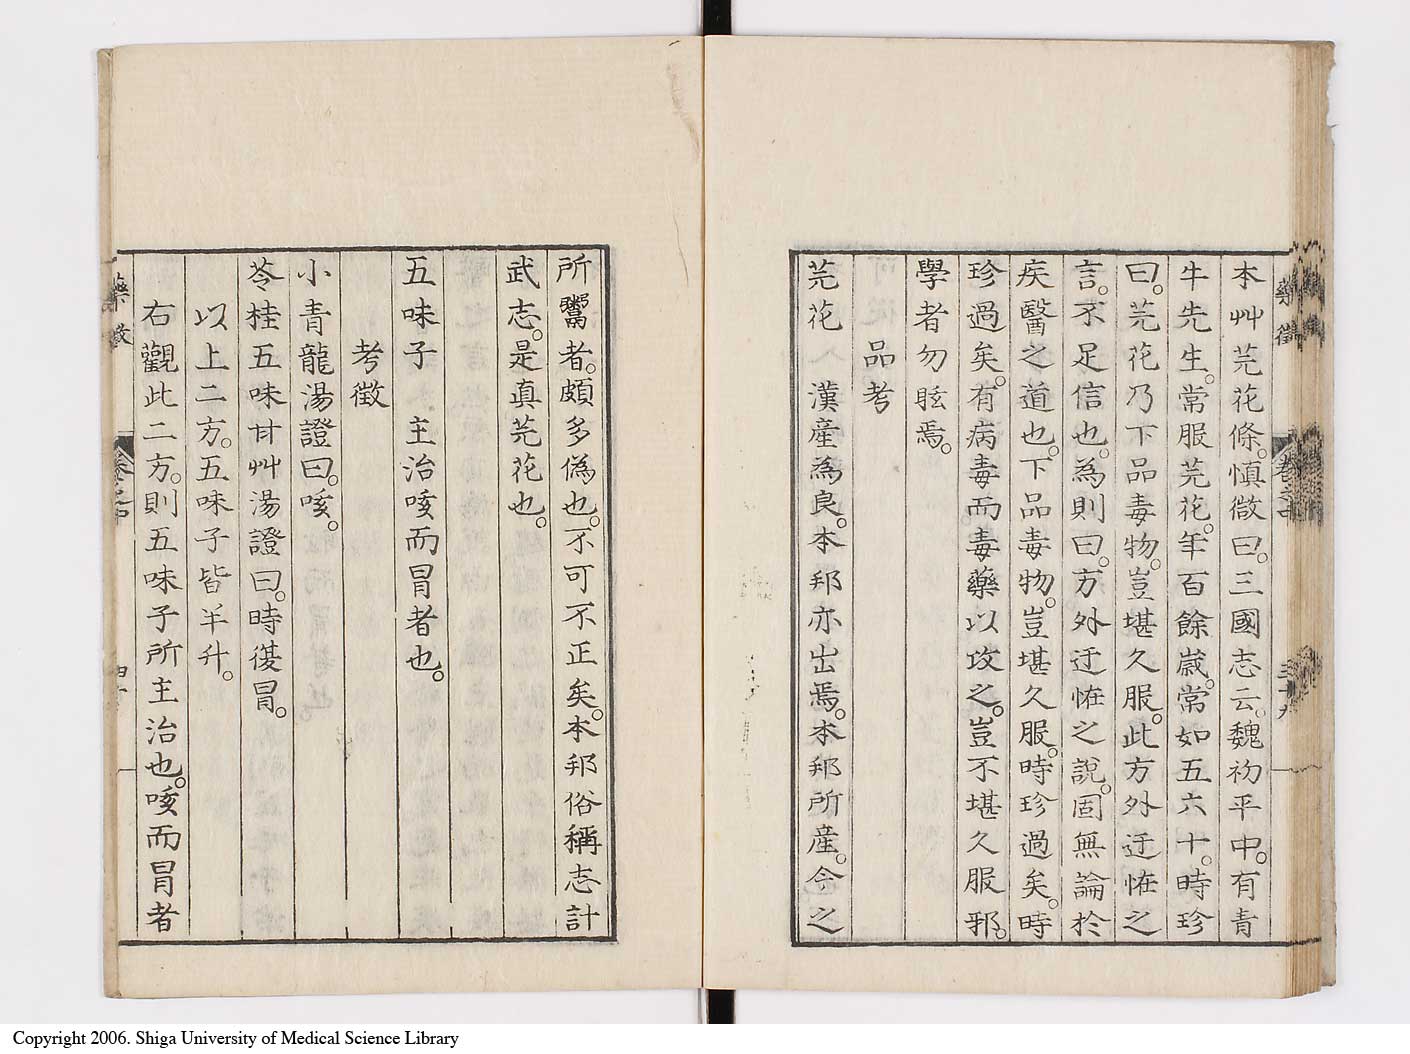 本艸芫花條。慎微曰。三國志云。魏初平中。有青
牛先生。常服芫花。年百餘歲。常如五六十。時珍
曰。芫花乃下品毒物。豈堪久服。此方外迂恠之
言。不足信也。為則曰。方外迂恠之說。固無論於
疾醫之道也。下品毒物。豈堪久服。時珍過矣。時
珍過矣。有病毒而毒藥以攻之。豈不堪久服邪。
學者勿眩焉。
品考
芫花 漢產為良。本邦亦出焉。本邦所產。今之
藥徵
卷之中
三十九
所鬻者。頗多偽也。不可不正矣。本邦俗稱志計
武志。是真芫花也。
五味子 主治咳而冒者也。
考徵
小青龍湯證曰。咳。
苓桂五味甘艸湯證曰。時復冒。
以上二方。五味子皆半升。
右觀此二方。則五味子所主治也。咳而冒者
藥徵
卷之中
四十
Copyright 2006. Shiga University of Medical Science Library